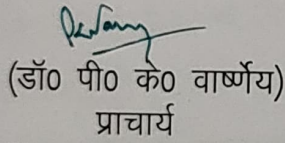 (डॉ0 पी0 के0 वार्ष्णेय)
प्राचार्य